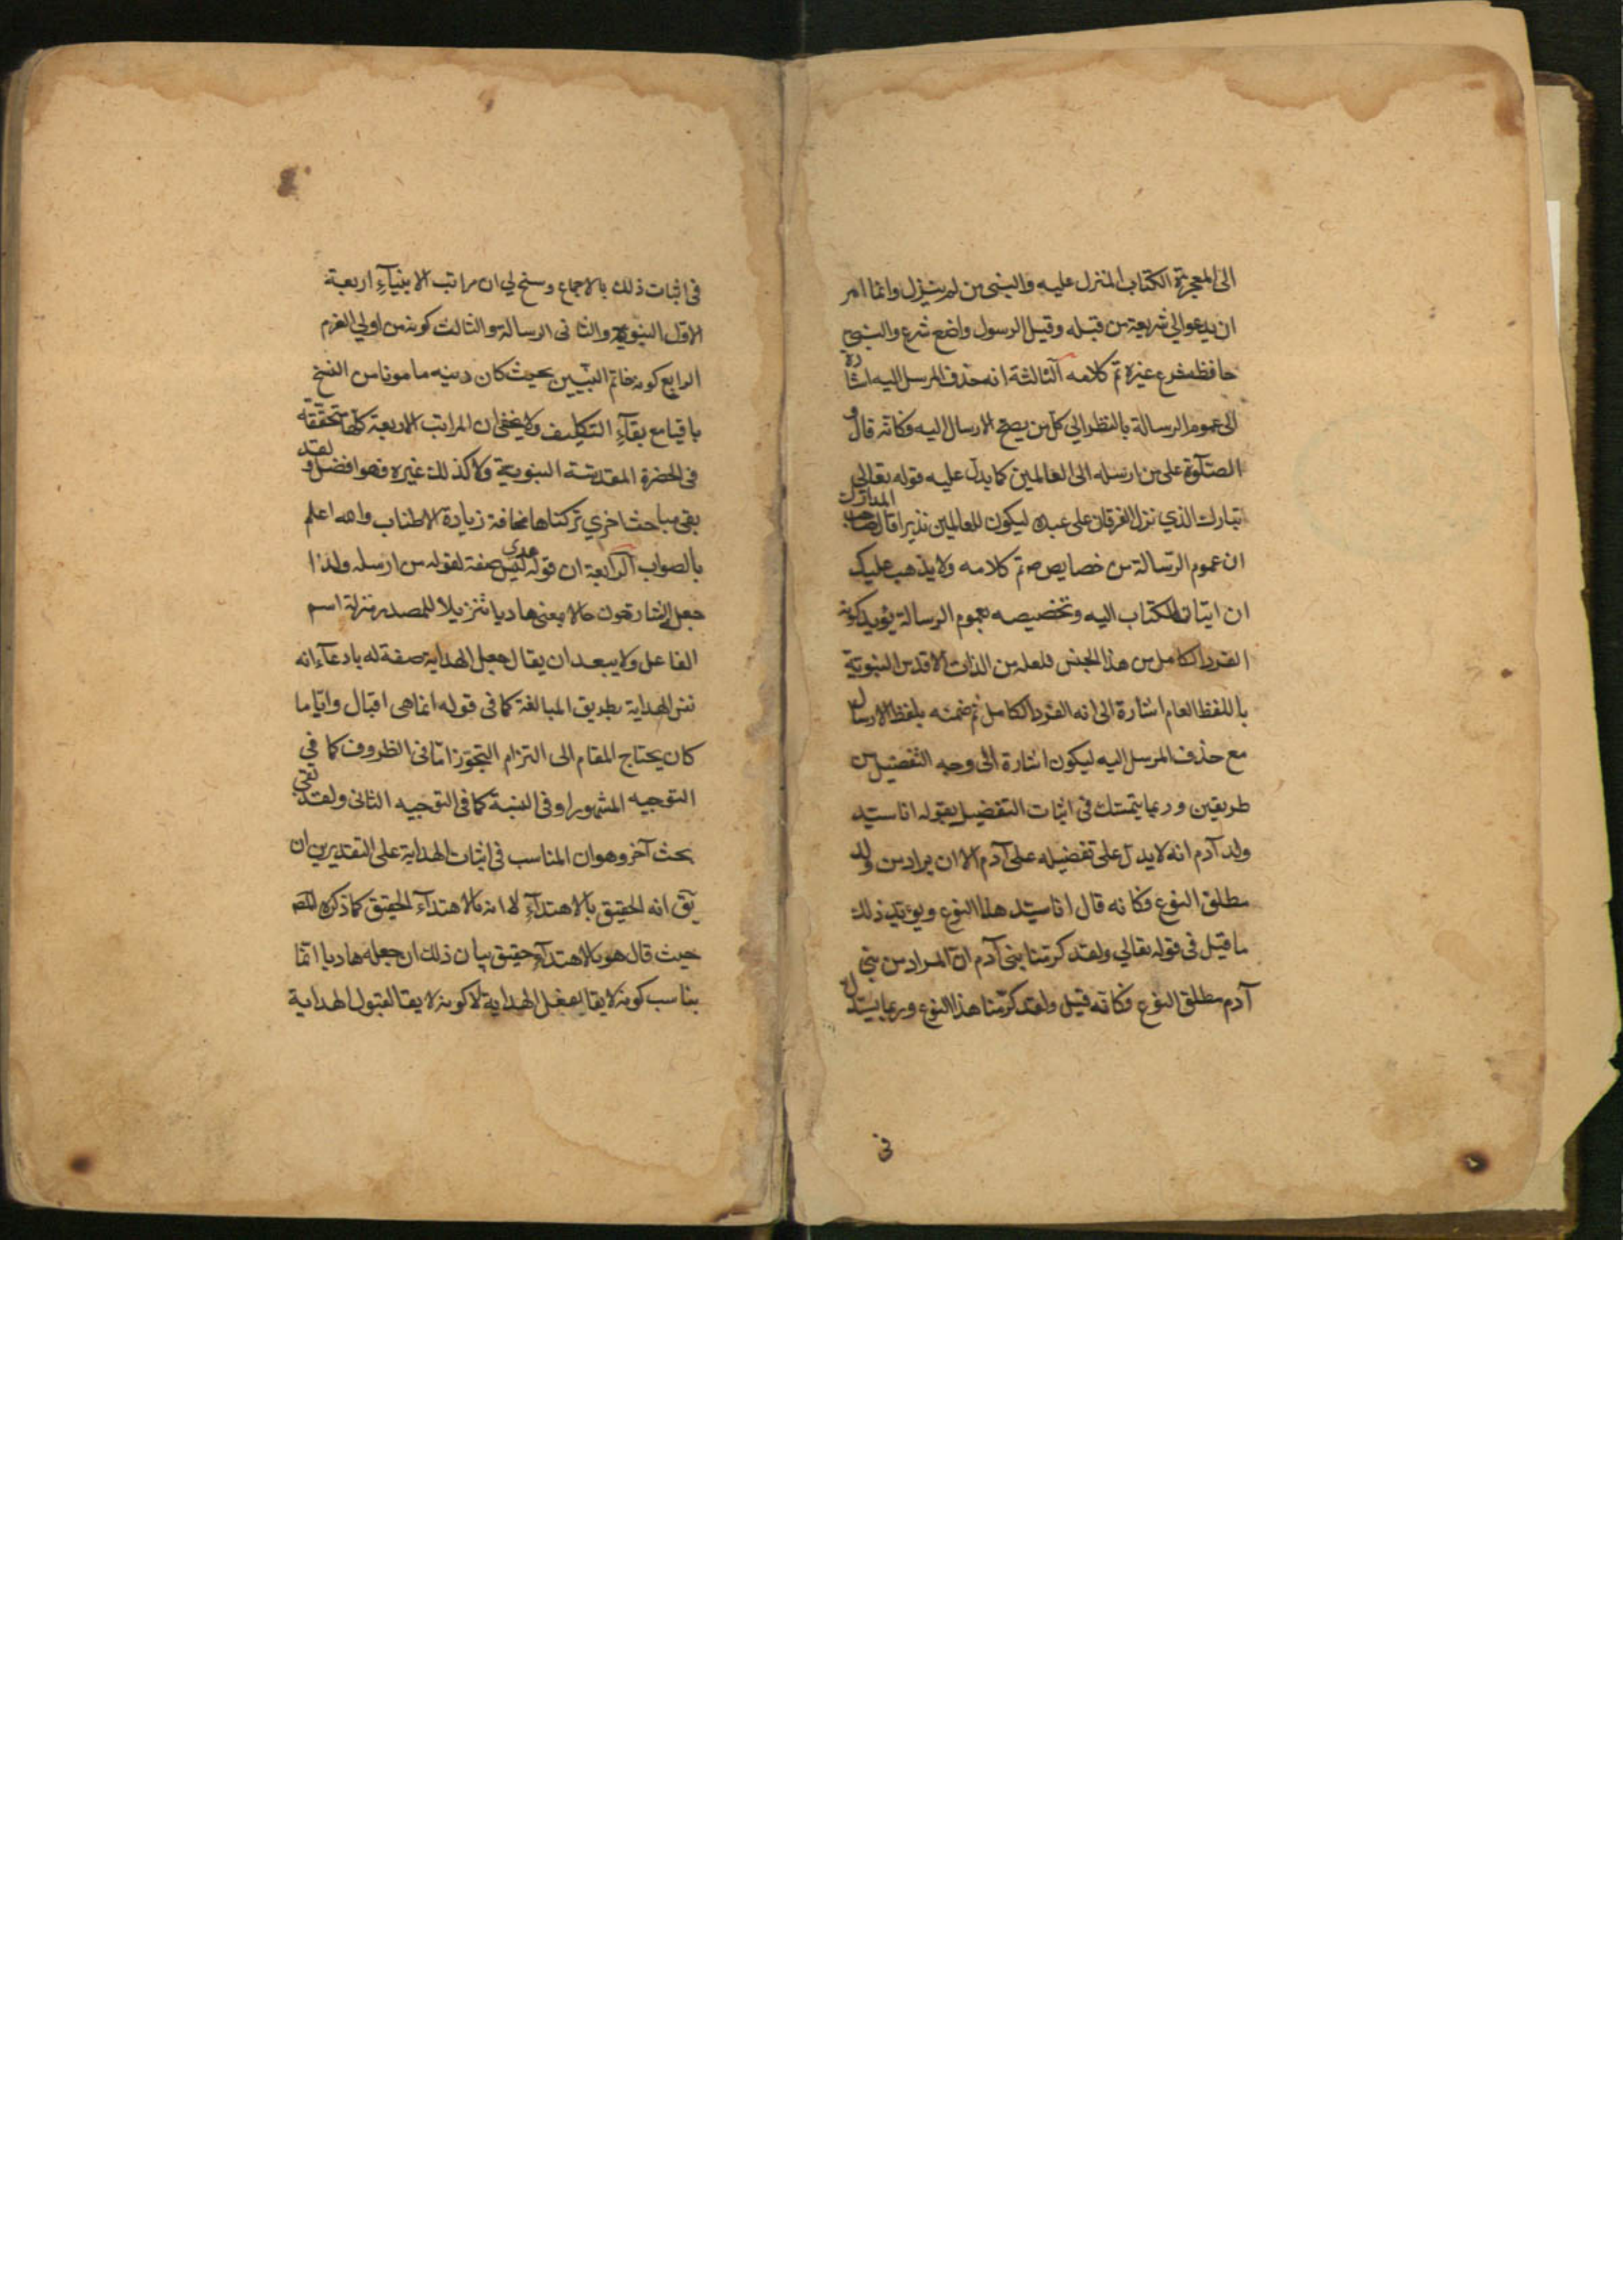 الى المعجزة الكتاب المنزل عليه والنبي من لم ينزل وانما امر
ان يدعو الى شريعة من قبله وقيل الرسول واضع شرع والنبي
حافظ شرع غيره تم كلامه الثالثة انه حذف المرسل اليه اشارة
الى عموم الرسالة بالنظر الي كل من يصح الارسال اليه فكانه قال و
الصلوة على من ارسله الى العالمين كما يدل عليه قوله تعالى
تبارك الذي نزل الفرقان على عبده ليكون للعالمين نذيرا قال صاحب المدارك
ان عموم الرسالة من خصايصه تم كلامه ولا يذهب عليك
ان اتيان الكتاب اليه وتخصيصه بعموم الرسالة يؤيد كونه
الفرد الكامل من هذا الجنس فلعله من الذات الاقدس النبوية
باللفظ العام اشارة الى انه الفرد الكامل ثم ضمنه بلفظ الارسال
مع حذف المرسل اليه ليكون اشارة الى وجه التفضيل من
طريقين وربما يتمسك في اثبات التفضيل بقوله انا سيد
ولد آدم انه لا يدل على تفضيله على آدم الا ان يراد من ولد
مطلق النوع فكانه قال انا سيد هذا النوع ويؤيد ذلك
ما قيل في قوله تعالي ولقد كرمنا بني آدم ان المراد من بني
آدم مطلق النوع فكانه قيل ولقد كرمنا هذا النوع وربما يستدل
في
في اثبات ذلك بالاجماع وسنح لي ان مراتب الانبيآء اربعة
الاول النبوة والثاني الرسالة والثالث كونه من اولي العزم
الرابع كونه خاتم النبيين بحيث كان دينه مامونا من النسخ
باقيا مع بقآء التكليف ولا يخفى ان المراتب الاربعة كلها متحققة
في الحضرة المقدسة النبوية ولا كذلك غيره فهو افضل ولقد
بقي مباحث اخري تركناها مخافة زيادة الاطناب والله اعلم
بالصواب الرابعة ان قوله هدى ليس صفة لقوله من ارسله ولذا
جعل الشارحون حالا بمعنى هاديا تنزيلا للمصدر منزلة اسم
الفاعل ولا يبعد ان يقال جعل الهداية صفة له بادعآء انه
نفس الهداية بطريق المبالغة كما في قوله انما هي اقبال وايا ما
كان يحتاج المقام الى التزام التجوز اما في الظروف كما في
التوجيه المشهور او في النسبة كما في التوجيه الثاني ولقد بقي
بحث آخر وهو ان المناسب في اثبات الهداية على التقديرين ان
يق انه الحقيق بالاهتدآء لا انه بالاهتدآء الحقيق كما ذكره المص
حيث قال هو بالاهتدآء حقيق بيان ذلك ان جعله هاديا انما
يناسب كونه لايقا بفعل الهداية لا كونه لايقا لقبول الهداية